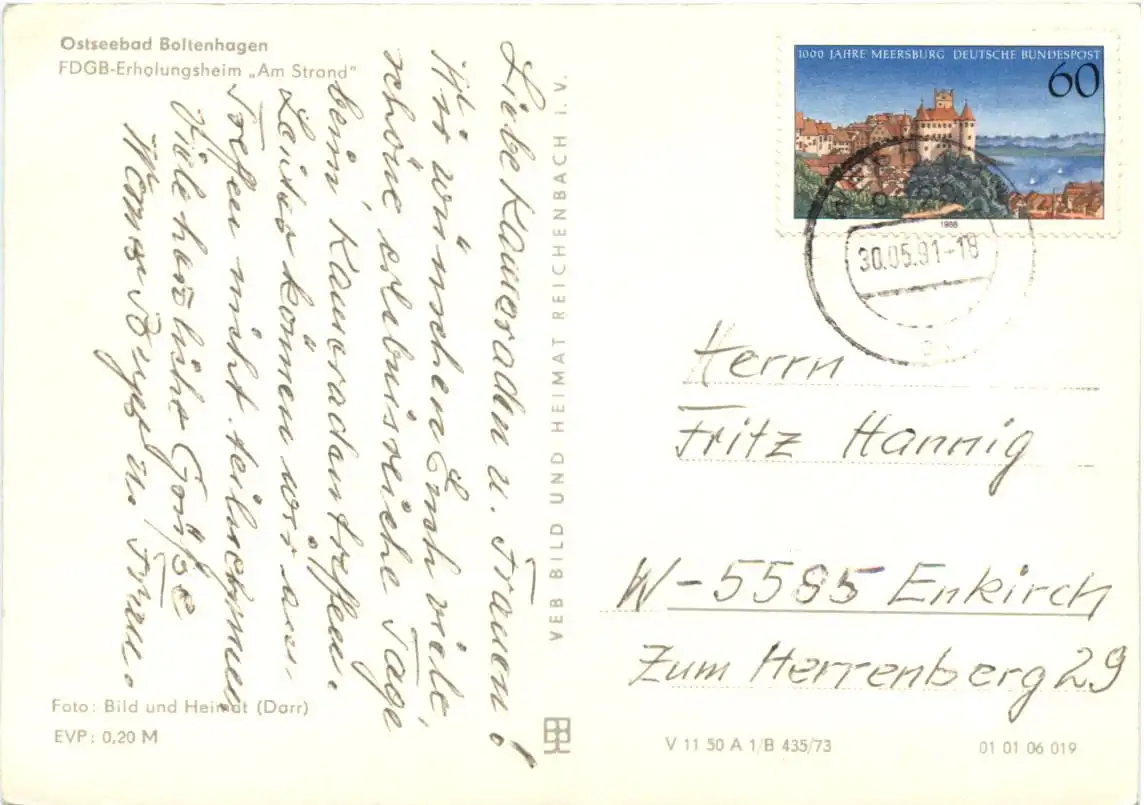 Ostseebad Boltenhagen
FDGB-Erholungsheim „Am Strand"
Liebe Kameraden u. Frauen!
Wir wünschen Euch viele,
schöne erlebnisreiche Tage
beim Kameradentreffen.
Leider können wir am
Treffen nicht teilnehmen
Viele herzliche Grüße
u. Frau.
Foto: Bild und Heimat (Darr)
EVP: 0,20 M
VEB BILD UND HEIMAT REICHENBACH I. V.
1000 JAHRE MEERSBURG DEUTSCHE BUNDESPOST
60
1988
30.05.91-18
Herrn
Fritz Hannig
W-5585 Enkirch
Zum Herrenberg 29
V 11 50 A 1/B 435/73
01 01 06 019